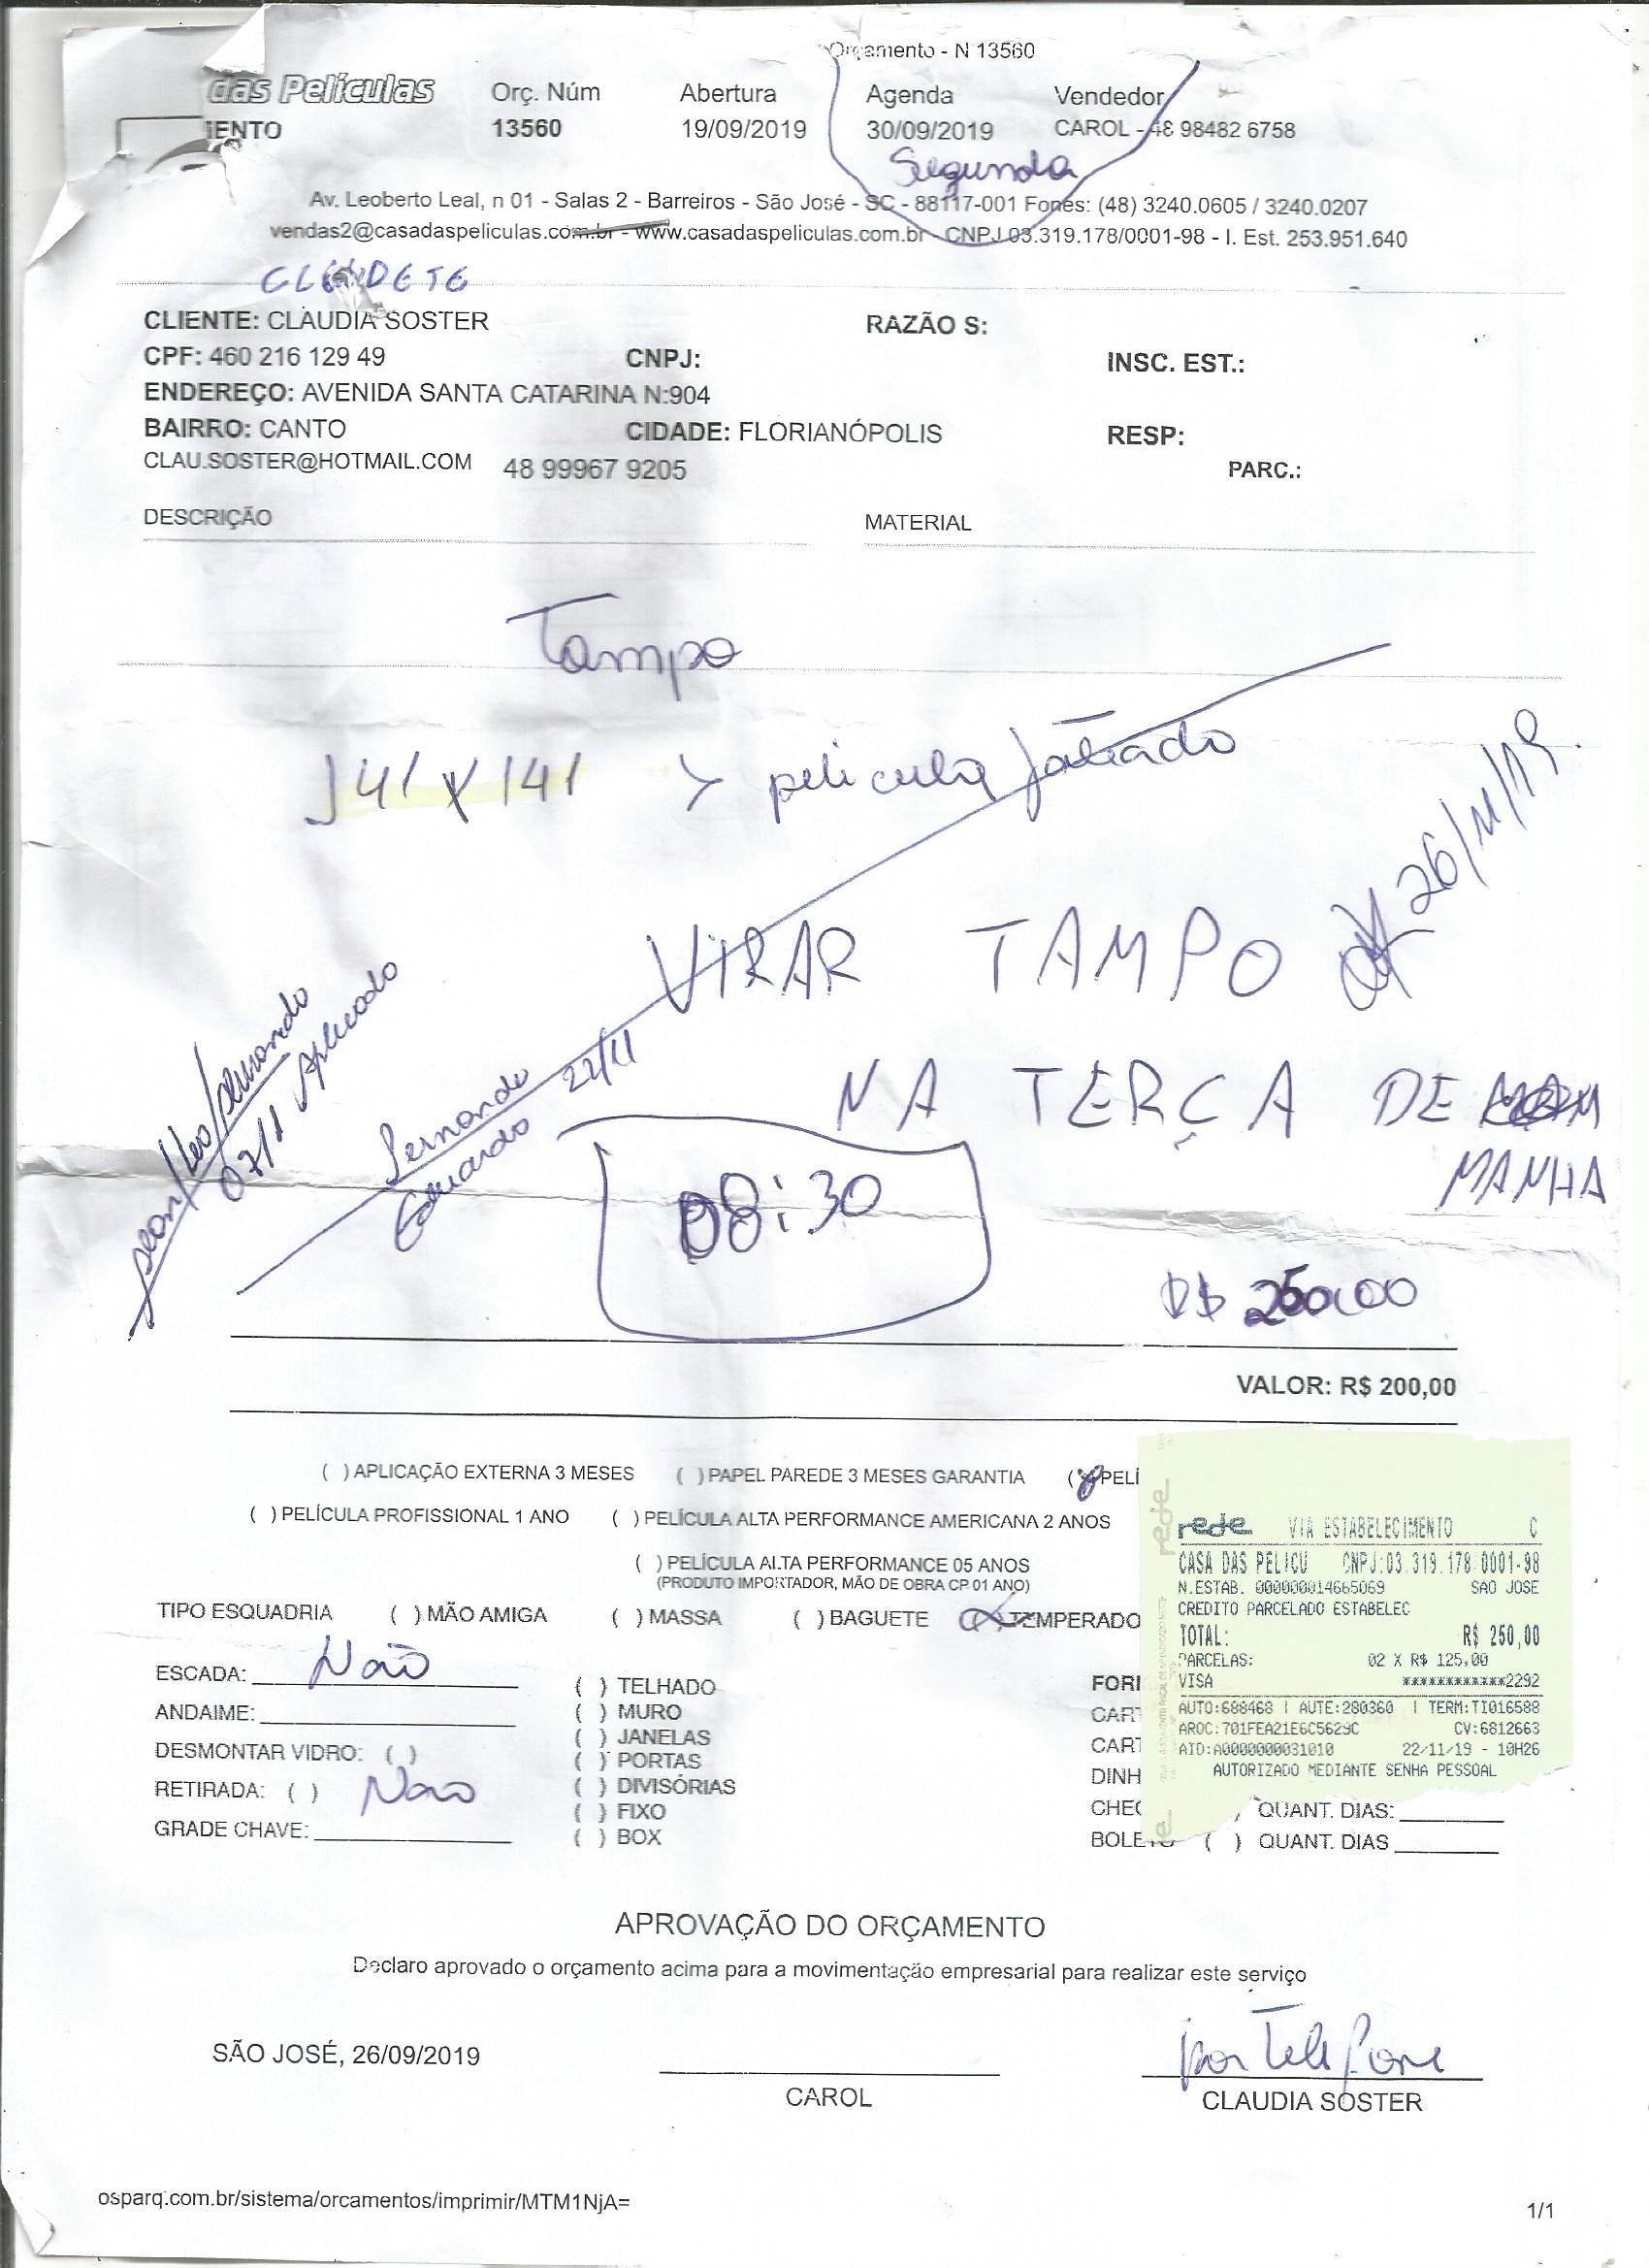 Orçamento - N 13560
das Películas Orç. Núm Abertura Agenda Vendedor
13560 19/09/2019 30/09/2019 CAROL - 48 98482 6758
Segunda
Av. Leoberto Leal, n 01 - Salas 2 - Barreiros - São José - SC - 88117-001 Fones: (48) 3240.0605 / 3240.0207
vendas2@casadaspeliculas.com.br - www.casadaspeliculas.com.br - CNPJ 03.319.178/0001-98 - I. Est. 253.951.640
CLIENTE: CLAUDIA SOSTER RAZÃO S:
CPF: 460 216 129 49 CNPJ: INSC. EST.:
ENDEREÇO: AVENIDA SANTA CATARINA N:904
BAIRRO: CANTO CIDADE: FLORIANÓPOLIS RESP:
CLAU.SOSTER@HOTMAIL.COM 48 99967 9205 PARC.:
DESCRIÇÃO MATERIAL
Tampo
141 x 141 > película jateado
26/11/19
VIRAR TAMPO
07/11 Aplicado
Fernando 22/11
Eduardo
NA TERÇA DE
MANHA
08:30
R$ 250,00
VALOR: R$ 200,00
( ) APLICAÇÃO EXTERNA 3 MESES ( ) PAPEL PAREDE 3 MESES GARANTIA (X) PELÍ
( ) PELÍCULA PROFISSIONAL 1 ANO ( ) PELÍCULA ALTA PERFORMANCE AMERICANA 2 ANOS
( ) PELÍCULA ALTA PERFORMANCE 05 ANOS
(PRODUTO IMPORTADOR, MÃO DE OBRA CP 01 ANO)
TIPO ESQUADRIA ( ) MÃO AMIGA ( ) MASSA ( ) BAGUETE (X) TEMPERADO
ESCADA: Não
ANDAIME:
DESMONTAR VIDRO: ( )
RETIRADA: ( ) Não
GRADE CHAVE:
( ) TELHADO
( ) MURO
( ) JANELAS
( ) PORTAS
( ) DIVISÓRIAS
( ) FIXO
( ) BOX
FOR
CART
CART
DINH
CHEQ QUANT. DIAS:
BOLETO ( ) QUANT. DIAS
rede VIA ESTABELECIMENTO C
CASA DAS PELICU CNPJ:03.319.178/0001-98
N.ESTAB. 000000014665069 SAO JOSE
CREDITO PARCELADO ESTABELEC
TOTAL: R$ 250,00
PARCELAS: 02 X R$ 125,00
VISA ************2292
AUTO:688468 | AUTE:280360 | TERM:TI016588
AROC:701FEA21E6C5629C CV:6812663
AID:A0000000031010 22/11/19 - 10H26
AUTORIZADO MEDIANTE SENHA PESSOAL
APROVAÇÃO DO ORÇAMENTO
Declaro aprovado o orçamento acima para a movimentação empresarial para realizar este serviço
SÃO JOSÉ, 26/09/2019
por Telefone
CAROL CLAUDIA SOSTER
osparq.com.br/sistema/orcamentos/imprimir/MTM1NjA= 1/1